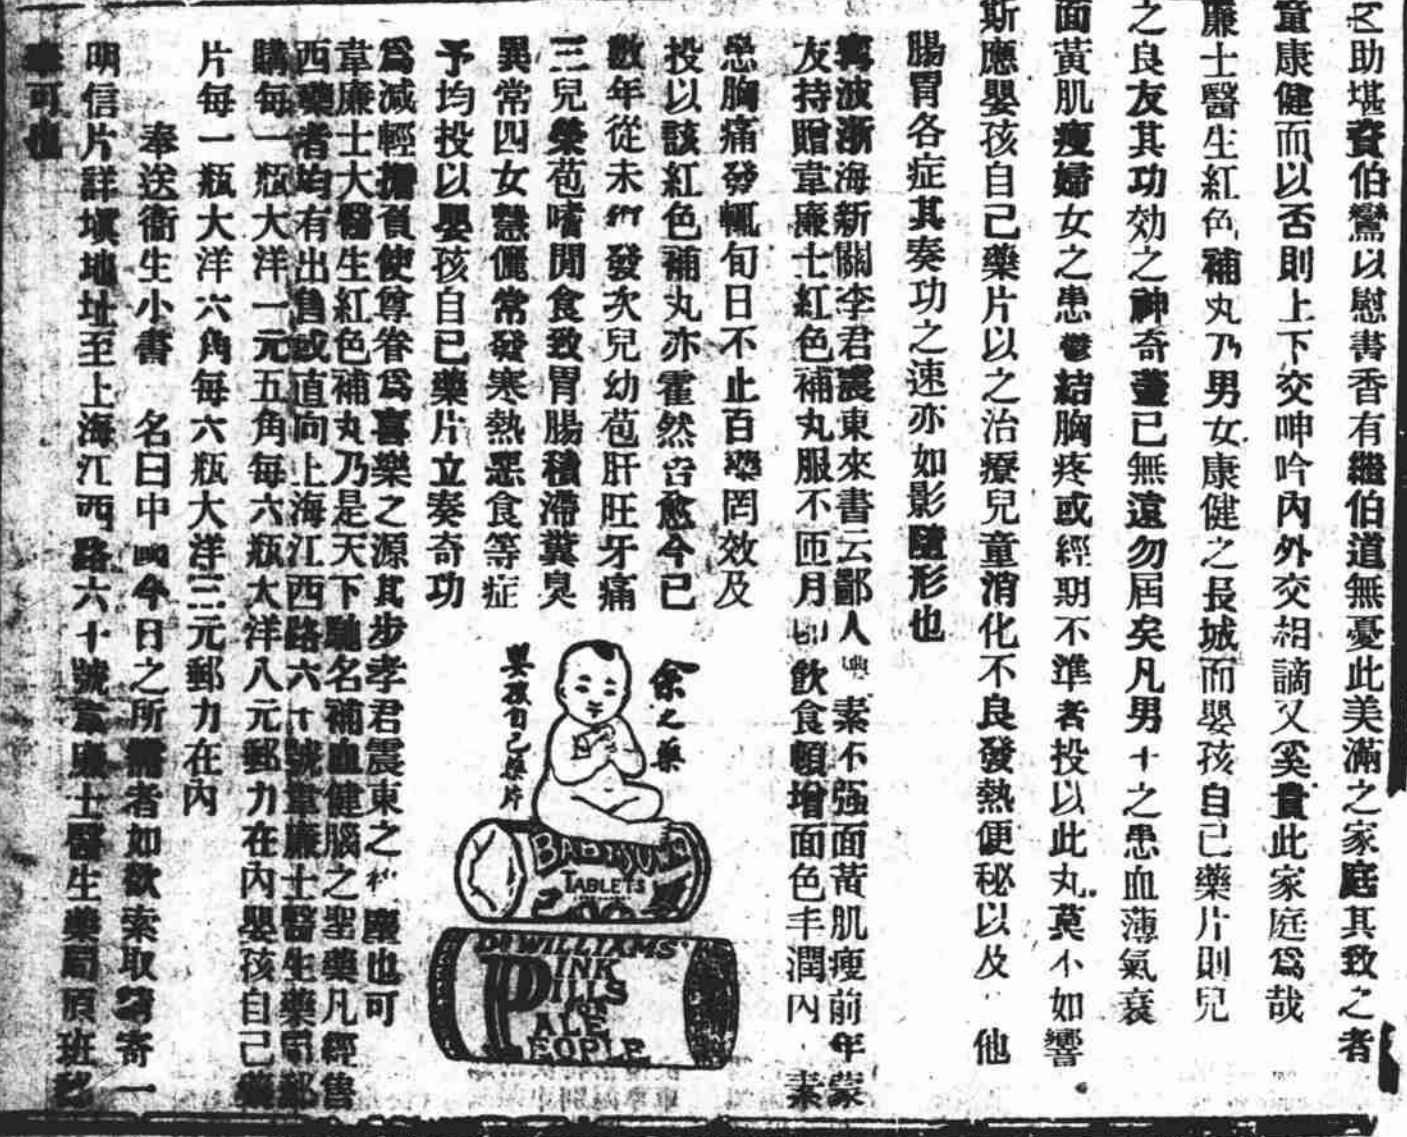 助堪資伯鸞以慰書香有繼伯道無憂此美滿之家庭其致之者
童康健而以否則上下交呻吟內外交相謫又奚貴此家庭爲哉
廉士醫生紅色補丸乃男女康健之長城而嬰孩自己藥片則兒
之良友其功効之神奇蓋已無遠勿屆矣凡男士之患血薄氣衰
面黃肌瘦婦女之患鬱結胸疼或經期不準者投以此丸莫不如響
斯應嬰孩自己藥片以之治療兒童消化不良發熱便秘以及 他
腸胃各症其奏功之速亦如影隨形也
寗波浙海新關李君震東來書云鄙人 素不强面黃肌瘦前年蒙
友持贈韋廉士紅色補丸服不匝月即飲食頓增面色丰潤內 素
患胸痛發輒旬日不止百藥罔效及
投以該紅色補丸亦霍然告愈今已
數年從未 發次兒幼苞肝旺牙痛
三兒榮苞嗜閒食致胃腸積滯糞臭
異常四女慧儷常發寒熱惡食等症
予均投以嬰孩自己藥片立奏奇功
爲減輕擔負使尊眷爲喜樂之源其步李君震東之 塵也可
韋廉士大醫生紅色補丸乃是天下馳名補血健腦之聖藥凡經售
西藥者均有出售或直向上海江西路六十號韋廉士醫生藥局郵
購每一瓶大洋一元五角每六瓶大洋八元郵力在內嬰孩自己藥
片每一瓶大洋六角每六瓶大洋三元郵力在內
奉送衞生小書 名曰中國今日之所需者如欲索取請寄一
明信片詳塡地址至上海江西路六十號韋廉士醫生藥局原班
可也
余之藥
嬰孩自己藥片
BABY'S OWN
TABLETS
DR WILLIAMS'
PINK
PILLS
FOR
PALE
PEOPLE